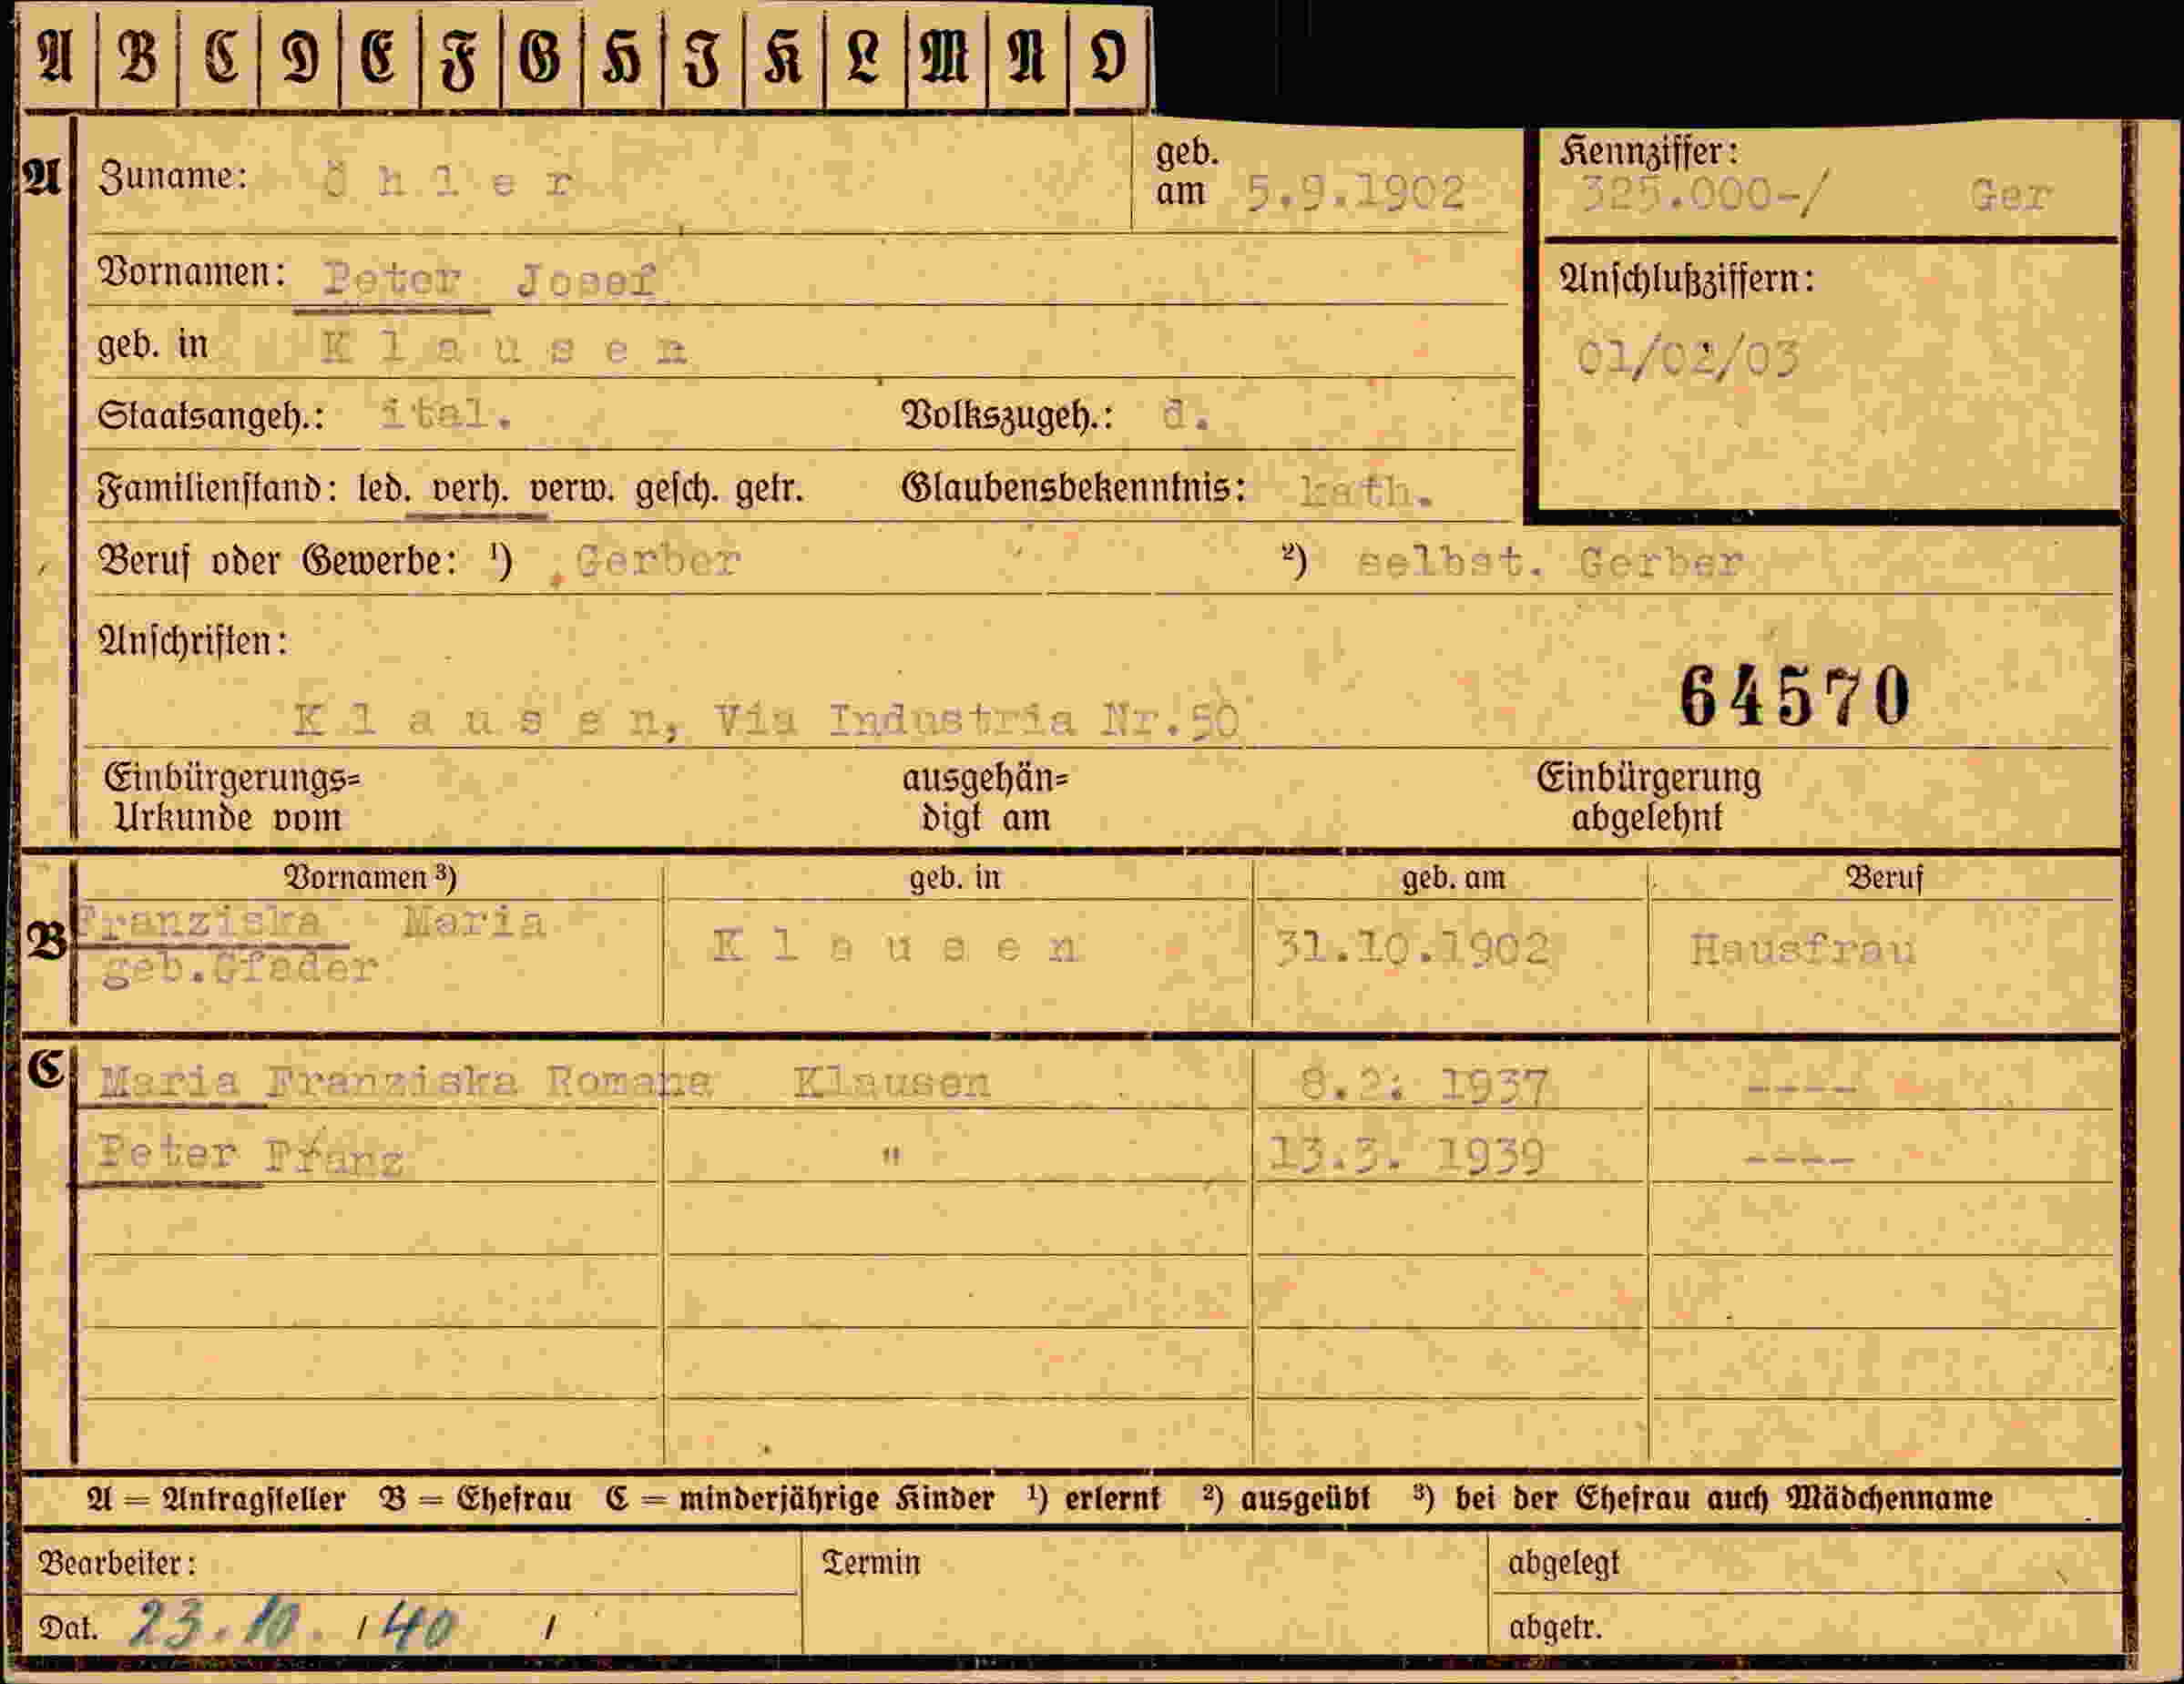 A B C D E F G H I K L M N O
A Zuname: Ö h l e r geb. am 5.9.1902 Kennziffer: 325.000-/ Ger
Vornamen: Peter Josef Anschlußziffern:
geb. in K l a u s e n 01/02/03
Staatsangeh.: ital. Volkszugeh.: d.
Familienstand: led. verh. verw. gesch. getr. Glaubensbekenntnis: kath.
Beruf oder Gewerbe: ¹) Gerber ²) selbst. Gerber
Anschriften:
K l a u s e n, Via Industria Nr.50 64570
Einbürgerungs= ausgehän= Einbürgerung
Urkunde vom digt am abgelehnt
Vornamen ³) geb. in geb. am Beruf
B Franziska Maria K l a u s e n 31.10.1902 Hausfrau
geb.Gfader
C Maria Franziska Romana Klausen 8.2. 1937 ----
Peter Franz " 13.3. 1939 ----
A = Antragsteller B = Ehefrau C = minderjährige Kinder ¹) erlernt ²) ausgeübt ³) bei der Ehefrau auch Mädchenname
Bearbeiter: Termin abgelegt
Dat. 23.10. / 40 / abgetr.